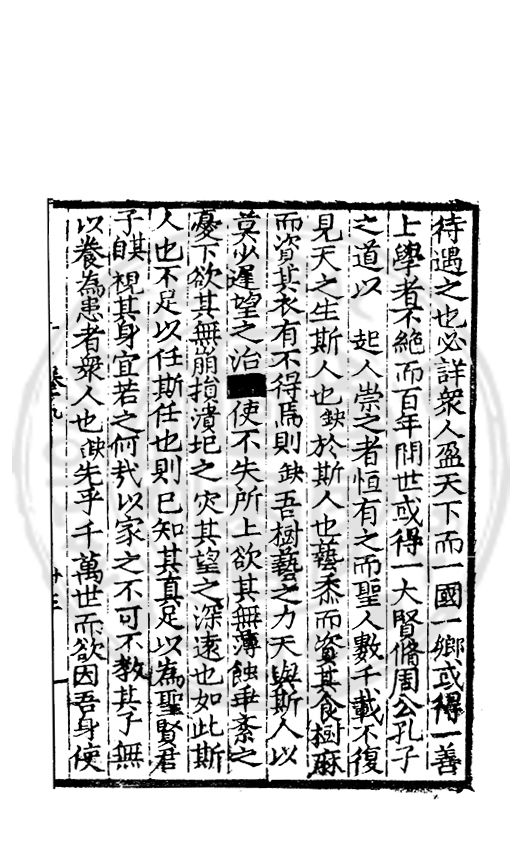 待遇之也必詳衆人盈天下而一國一鄉或得一善
上學者不絶而百年間世或得一大賢脩周公孔子
之道以 起人崇之者恒有之而聖人數千載不復
見天之生斯人也缺於斯人也藝黍而資其食樹麻
而資其衣有不得焉則缺吾樹藝之力天與斯人以
莫少遲望之治 使不失所上欲其無薄蝕垂紊之
憂下欲其無崩損潰圮之灾其望之深遠也如此斯
人也不足以任斯任也則已知其真足以為聖賢君
子自視其身宜若之何㢤以家之不可不教其子無
以養為患者衆人也缺先乎千萬世而欲因吾身使
卷之九
廿三